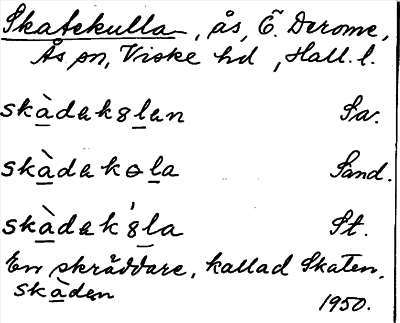 Skatekulla, ås, Ö. Derome,
Ås sn, Viske hd, Hall. l.
skàdak8lan Sa.
skàdakɵla Sand.
skàdak'8la St.
En skräddare, kallad Skaten.
skàden 1950.